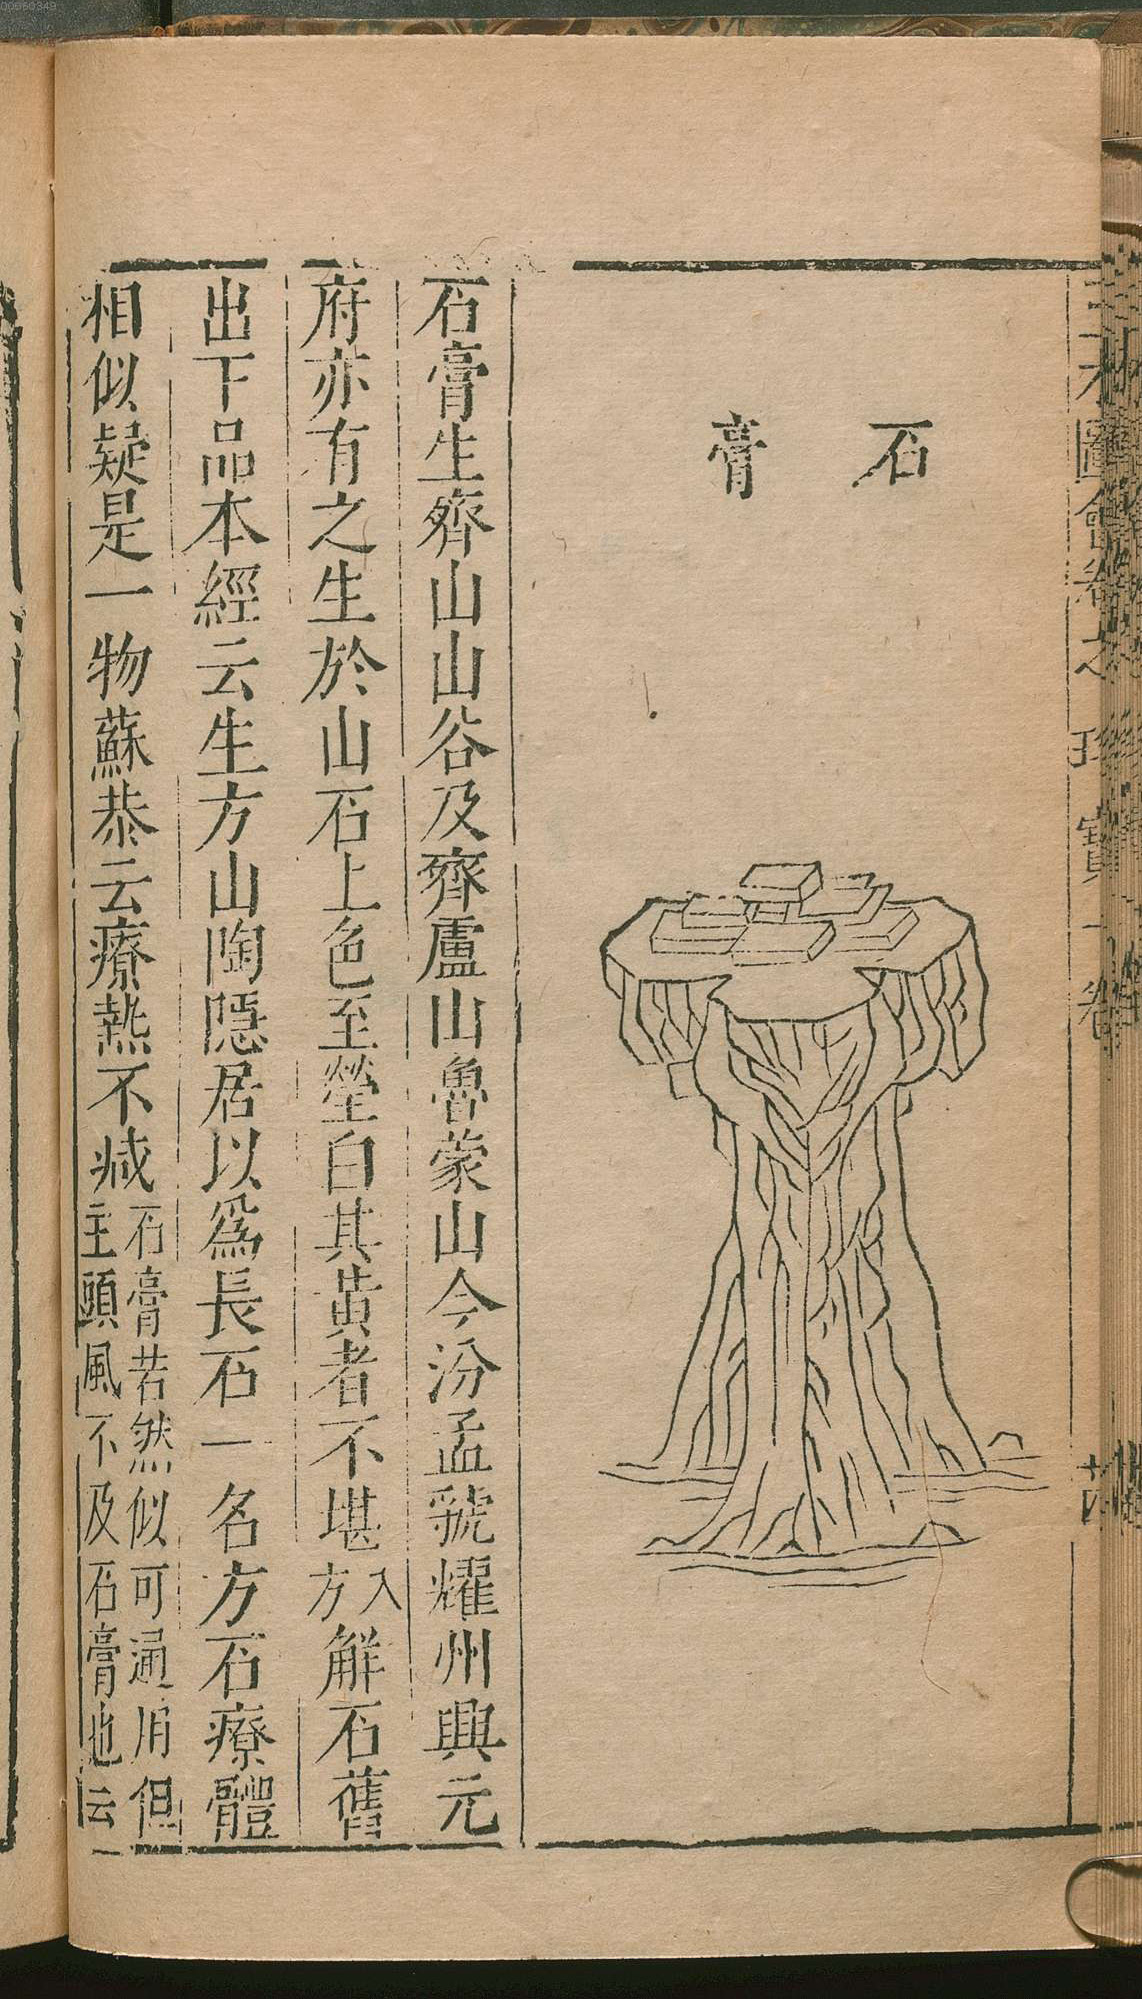 三才圖會卷之 珍寶一卷 廿
石膏
石膏生齊山山谷及齊盧山魯蒙山今汾孟虢耀州興元
府亦有之生於山石上色至瑩白其黃者不堪入方解石舊
出下品本經云生方山陶隱居以為長石一名方石療體
相似疑是一物蘇恭云療熱不減石膏若然似可通用但
主頭風不及石膏也云
00060349